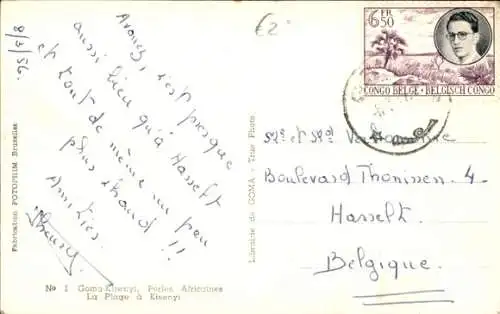 8/3/56.
Avouez, c'est presque
aussi bien qu'à Hasselt
et tout de même un peu
plus chaud !!
Amitiés.
Nº 1 Goma-Kisenyi, Perles Africaines
La Plage à Kisenyi
Fabrication FOTOPRIM Bruxelles
Librairie de GOMA - True Photo
€2
6 FR
50
CONGO BELGE - BELGISCH CONGO
et
Boulevard Thonissen 4
Hasselt
Belgique